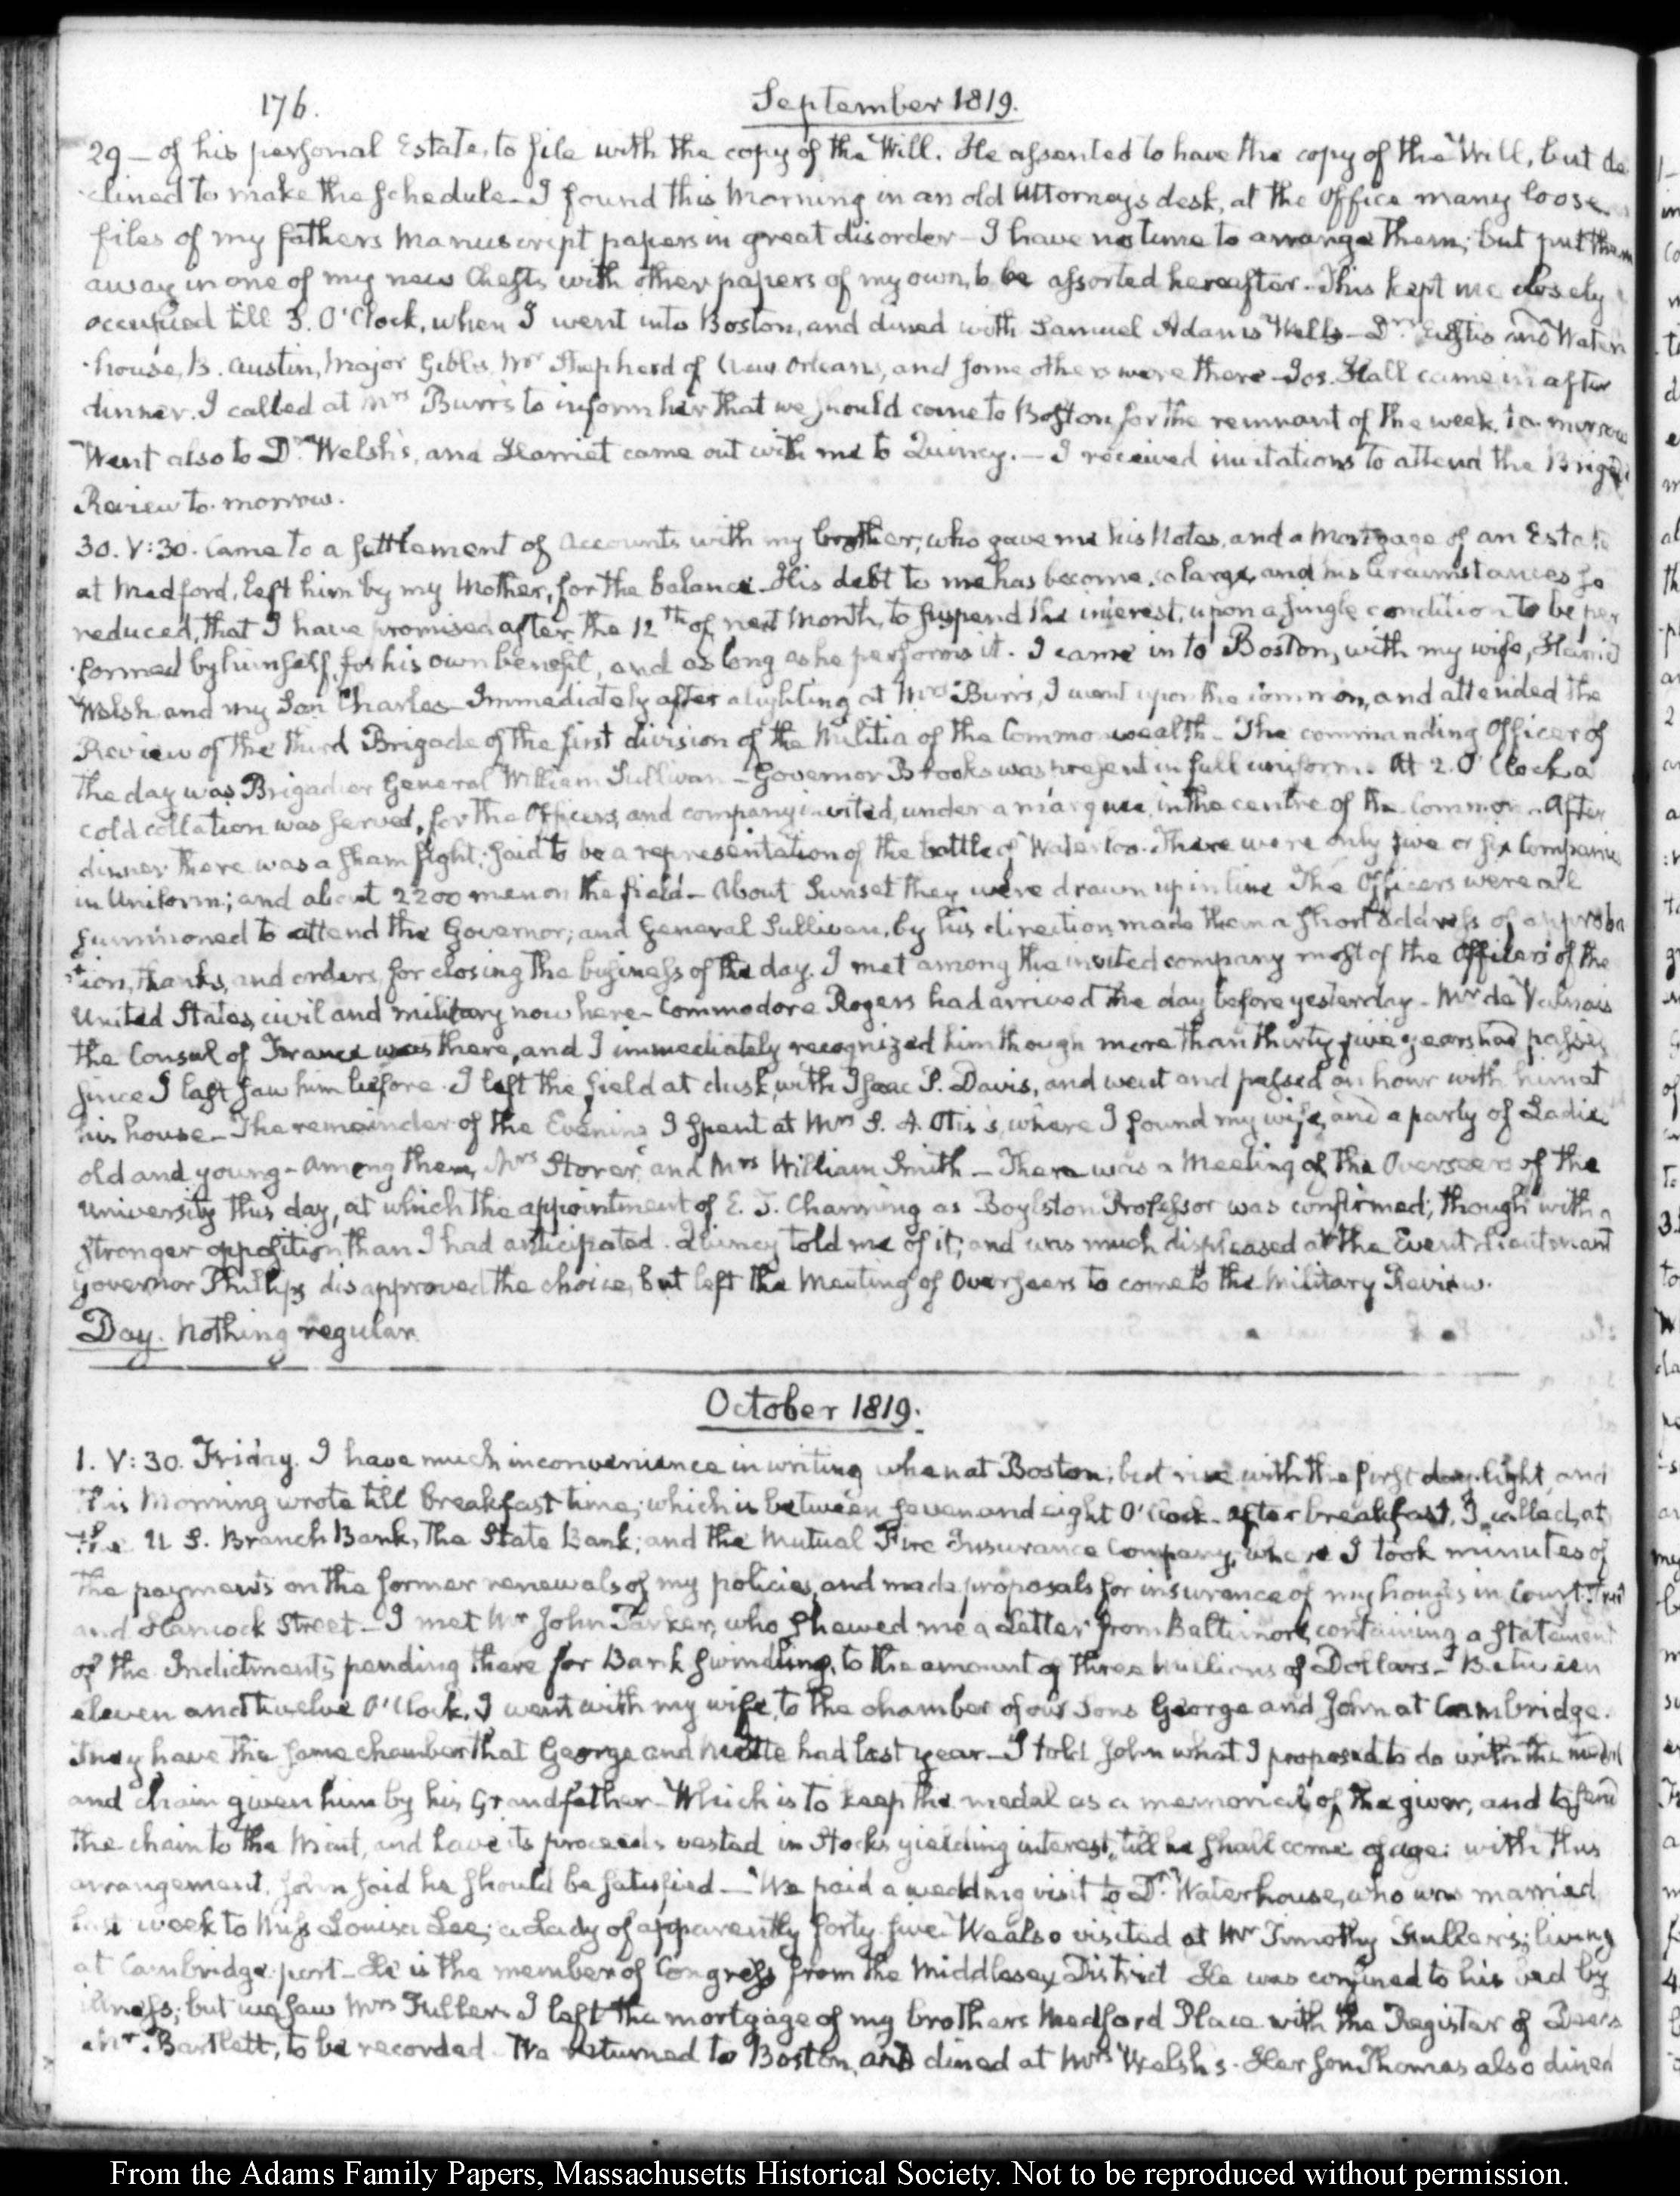 176.
September 1819.
29 — of his personal Estate, to file with the copy of the Will. He assented to have the copy of the Will, but de
clined to make the schedule — I found this Morning in an old Attorneys desk, at the Office many loose
files of my fathers Manuscript papers in great disorder — I have no time to arrange them; but put them
away in one of my new Chests with other papers of my own, to be assorted hereafter. This kept me closely
occupied till 3. O'Clock, when I went into Boston, and dined with Samuel Adams Wells — Drs. Eustis and Water
house, B. Austin, Major Gibbs, Mr Shepherd of New Orleans, and some others were there — Jos. Hall came in after
dinner. I called at Mrs Burris to inform her that we should come to Boston for the remnant of the week, to-morrow
Went also to Dr. Welsh's, and Harriet came out with me to Quincy. — I received invitations to attend the Brigade
Review to-morrow.
30. V:30. Came to a settlement of Accounts with my brother, who gave me his Notes, and a Mortgage of an Estate
at Medford, left him by my Mother, for the balance — His debt to me has become so large, and his circumstances so
reduced, that I have promised after the 12th of next Month, to suspend the interest, upon a single condition to be per
formed by himself, for his own benefit, and as long as he performs it. I came in to Boston, with my wife, Harriet
Welsh and my Son Charles — Immediately after alighting at Mrs Burris, I went upon the common, and attended the
Review of the third Brigade of the first division of the Militia of the Commonwealth — The commanding Officer of
the day was Brigadier General William Sullivan — Governor Brooks was present in full uniform. At 2. O'Clock a
cold collation was served, for the Officers, and company invited, under a marquee, in the centre of the Common — After
dinner there was a sham fight; said to be a representation of the battle of Waterloo. There were only five or six Companies
in Uniform; and about 2200 men on the field — About Sunset they were drawn up in line The Officers were all
summoned to attend the Governor; and General Sullivan, by his direction made them a short address of approba
tion, thanks, and orders, for closing the business of the day. I met among the invited company most of the Officers of the
United States, civil and military now here — Commodore Rogers had arrived the day before yesterday — Mr de Valnais
the Consul of France was there, and I immediately recognized him though more than thirty five years had passed
since I last saw him before. I left the field at dusk, with Isaac P. Davis, and went and passed an hour with him at
his house — The remainder of the Evening I spent at Mrs S. A. Otis's, where I found my wife, and a party of Ladies
old and young — among them, Mrs Storer, and Mrs William Smith — There was a Meeting of the Overseers of the
University this day, at which the appointment of E. T. Channing as Boylston Professor was confirmed; though with a
stronger opposition than I had anticipated. Quincy told me of it; and was much displeased at the Event Lieutenant
Governor Phillips disapproved the choice, but left the Meeting of Overseers to come to the Military Review.
Day. Nothing regular.
October 1819.
1. V:30. Friday. I have much inconvenience in writing when at Boston; but rise with the first day-light, and
this Morning wrote till breakfast time; which is between seven and eight O'Clock — After breakfast, I called, at
the U S. Branch Bank, the State Bank; and the Mutual Fire Insurance Company, where I took minutes of
the payments on the former renewals of my policies, and made proposals for insurance of my houses in Court-Street
and Hancock Street — I met Mr John Parker, who shewed me a Letter from Baltimore, containing a statement
of the Indictments pending there for Bank swindling, to the amount of three Millions of Dollars — Between
eleven and twelve O'Clock, I went with my wife, to the chamber of our Sons George and John at Cambridge.
They have the same chamber that George and had last year — I told John what I proposed to do with the medal
and chain given him by his Grandfather — Which is to keep the medal as a memorial of the giver, and to send
the chain to the Mint, and have its proceeds vested in Stocks yielding interest, till he shall come of age: with this
arrangement, John said he should be satisfied — We paid a wedding visit to Dr. Waterhouse, who was married
last week to Miss Louisa Lee; a Lady of apparently forty five We also visited at Mr Timothy Fuller's; living
at Cambridge-port — He is the member of Congress from the Middlesex District He was confined to his bed by
illness; but we saw Mrs Fuller. I left the mortgage of my brothers Medford Place with the Register of Deeds
Mr. Bartlett, to be recorded We returned to Boston, and dined at Mrs Welsh's. Her son Thomas also dined
From the Adams Family Papers, Massachusetts Historical Society. Not to be reproduced without permission.